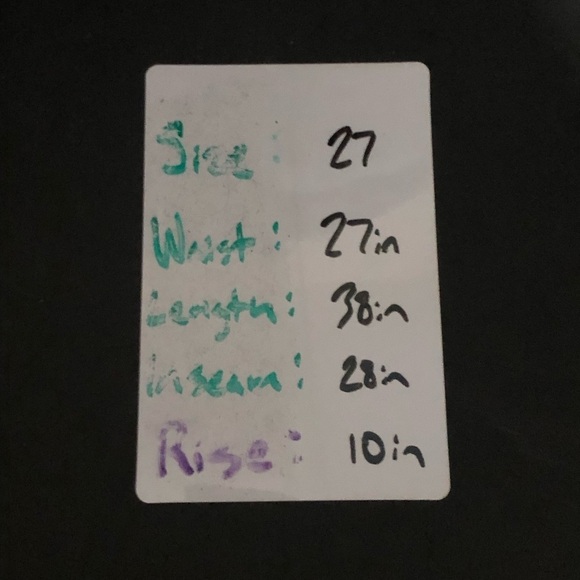 Size: 27
Waist: 27in
Length: 38in
Inseam: 28in
Rise: 10in